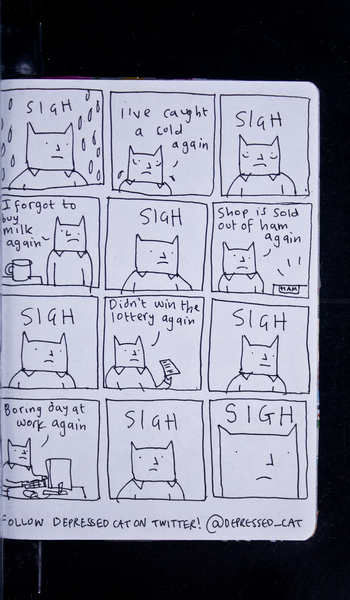 SIGH
I've caught
a cold
again
SIGH
I forgot to
buy
milk
again
SIGH
Shop is sold
out of ham
again
HAM
SIGH
Didn't win the
lottery again
SIGH
Boring day at
work again
SIGH
SIGH
FOLLOW DEPRESSED CAT ON TWITTER! @DEPRESSED_CAT